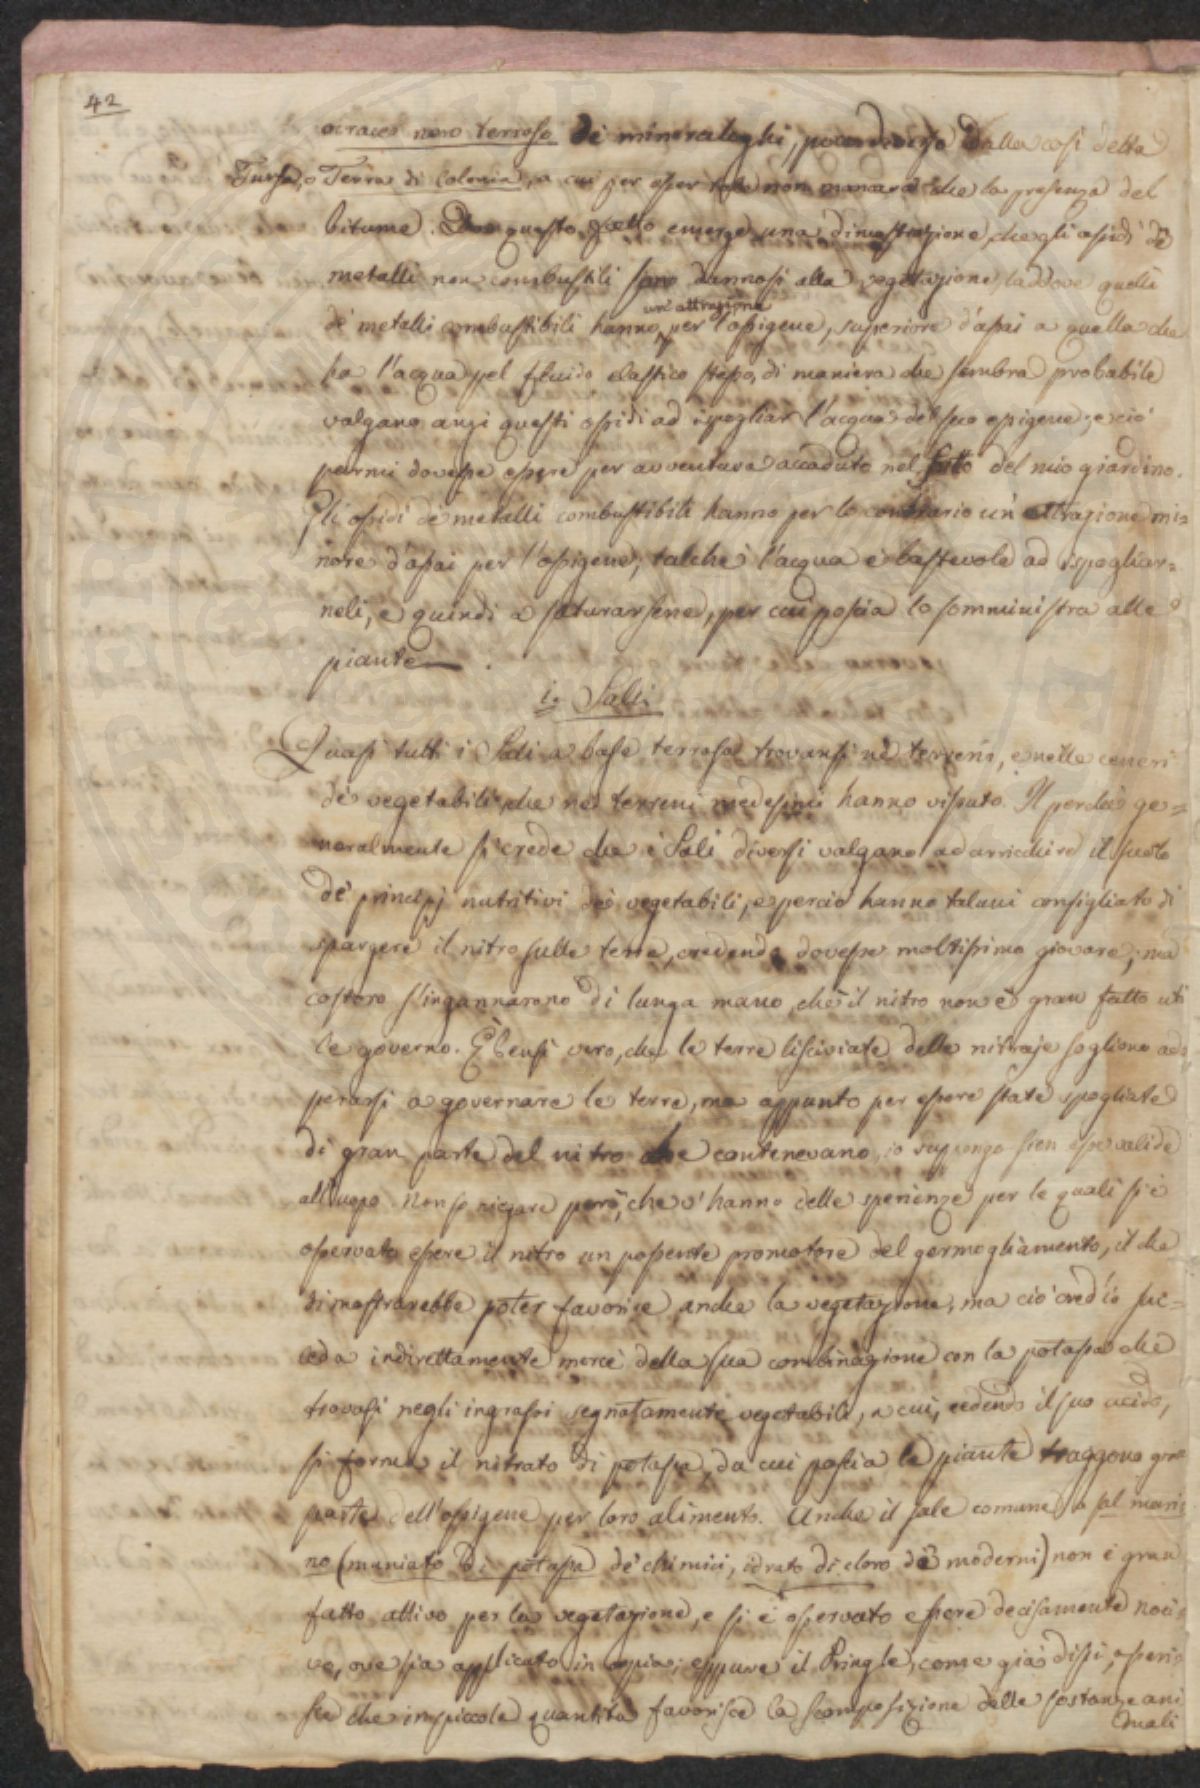 42
ocraceo nero terroso de' mineraloghi, poco diverso dalla così detta
Turfa, o Terra di Colonia, a cui per esser tale non mancare che la presenza del
bitume. Da questo fatto emerge una dimostrazione che gli ossidi de'
metalli non combustili sono dannosi alla vegetazione, laddove quelli
un' attrazione
de' metalli combustibili hanno per l'ossigene, superiore d'assai a quella che
ha l'acqua pel fluido elastico stesso, di maniera che sembra probabile
valgano anzi questi ossidi ad ispogliar l'acqua del suo ossigene; e ciò
parmi dovesse essere per avventura accaduto nel fatto del mio giardino.
Gli ossidi de' metalli combustibili hanno per lo contrario un' attrazione mi=
nore d'assai per l'ossigene, talchè l'acqua è bastevole ad ispogliar=
neli, e quindi a saturarsene, per cui poscia lo somministra alle
piante.
i. Sali
Quasi tutti i Sali a base terrosa trovansi ne' terreni, e nelle ceneri
de' vegetabili che ne' terreni medesimi hanno vissuto. Il perchè ge=
neralmente si crede che i Sali diversi valgano ad arricchire il suolo
de' principj nutritivi dei vegetabili, e perciò hanno taluni consigliato di
spargere il nitro sulle terre, credendo dovesse moltissimo giovare; ma
costoro s'ingannarono di lunga mano, chè il nitro non è gran fatto uti
le governo. È bensì vero, che le terre lisciviate delle nitraje sogliono ado
perarsi a governare le terre, ma appunto per essere state spogliate
di gran parte del nitro che contenevano, io suppongo sien esse valide
all'uopo. Non so niegare però, che v'hanno delle sperienze per le quali si è
osservato essere il nitro un possente promotore del germogliamento, il che
dimostrarebbe poter favorire anche la vegetazione; ma ciò cred'io suc=
ceda indirettamente mercè della sua combinazione con la potassa che
trovasi negli ingrassi segnatamente vegetabili, a cui, cedendo il suo acido,
si forma il nitrato di potassa, da cui poscia le piante traggono gran
parte dell'ossigene per loro alimento. Anche il sale comune o sal mari=
no (muriato di potassa de' chimici, idrato di cloro de' moderni) non è gran
fatto attivo per la vegetazione, e si è osservato essere decisamente noci=
vo, ove sia applicato in copia; eppure il Pringle, come già dissi, asseri=
sce che in piccola quantità favorisce la scomposizione delle sostanze ani
mali